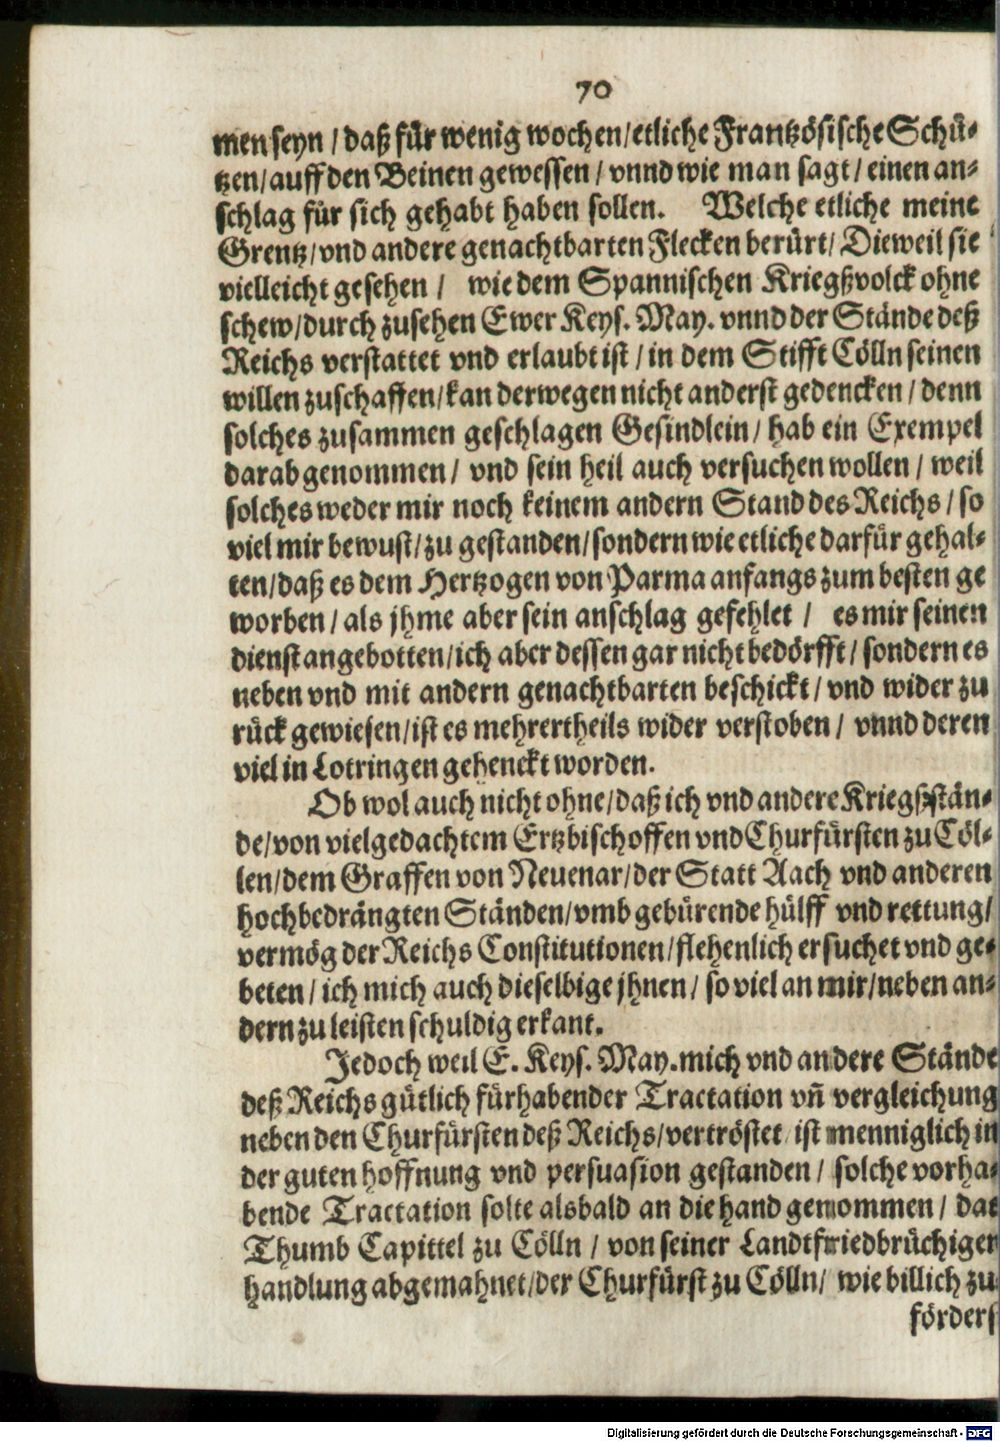 70
men seyn / daß für wenig wochen / etliche Frantzösische Schü-
tzen / auff den Beinen gewessen / vnnd wie man sagt / einen an-
schlag für sich gehabt haben sollen. Welche etliche meine
Grentz / vnd andere genachtbarten Flecken berürt / Dieweil sie
vielleicht gesehen / wie dem Spannischen Kriegßvolck ohne
schew / durch zusehen Ewer Keys. May. vnnd der Stände deß
Reichs verstattet vnd erlaubt ist / in dem Stifft Cölln seinen
willen zuschaffen / kan derwegen nicht anderst gedencken / denn
solches zusammen geschlagen Gesindlein / hab ein Exempel
darab genommen / vnd sein heil auch versuchen wollen / weil
solches weder mir noch keinem andern Stand des Reichs / so
viel mir bewust / zu gestanden / sondern wie etliche darfür gehal-
ten / daß es dem Hertzogen von Parma anfangs zum besten ge
worben / als jhme aber sein anschlag gefehlet / es mir seinen
dienst angebotten / ich aber dessen gar nicht bedörfft / sondern es
neben vnd mit andern genachtbarten beschickt / vnd wider zu
rück gewiesen / ist es mehrertheils wider verstoben / vnnd deren
viel in Lotringen gehenckt worden.
Ob wol auch nicht ohne / daß ich vnd andere Kriegßstän-
de / von vielgedachtem Ertzbischoffen vnd Churfürsten zu Cöl-
len / dem Graffen von Neuenar / der Statt Aach vnd anderen
hochbedrängten Ständen / vmb gebürende hülff vnd rettung /
vermög der Reichs Constitutionen / flehenlich ersuchet vnd ge-
beten / ich mich auch dieselbige jhnen / so viel an mir / neben an-
dern zu leisten schuldig erkant.
Jedoch weil E. Keys. May. mich vnd andere Stände
deß Reichs gütlich fürhabender Tractation vñ vergleichung
neben den Churfürsten deß Reichs / vertröstet / ist menniglich in
der guten hoffnung vnd persuasion gestanden / solche vorha-
bende Tractation solte alsbald an die hand genommen / dat
Thumb Capittel zu Cölln / von seiner Landtfriedbrüchiger
handlung abgemahnet / der Churfürst zu Cölln / wie billich zu
förders
Digitalisierung gefördert durch die Deutsche Forschungsgemeinschaft - DFG